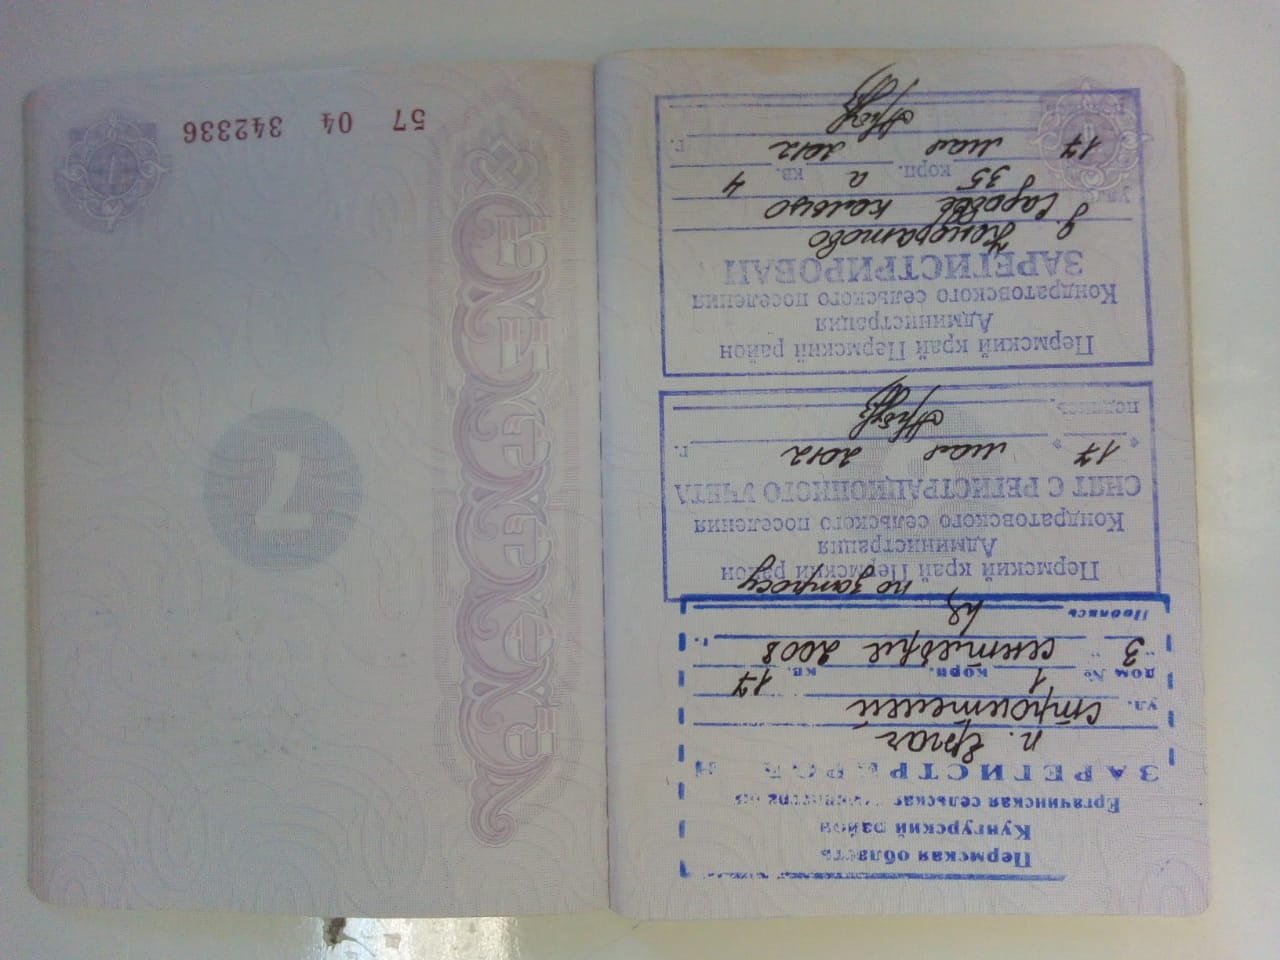 Пермская область
Кунгурский район
Ергачинская сельская
ЗАРЕГИСТРИРОВАН
п. Ергач
ул. Строителей
дом № 1 корп. кв. 17
"3" сентября 2008 г.
Подпись
по запросу
Пермский край Пермский район
Администрация
Кондратовского сельского поселения
СНЯТ С РЕГИСТРАЦИОННОГО УЧЕТА
"17" мая 2012 г.
подпись
Пермский край Пермский район
Администрация
Кондратовского сельского поселения
ЗАРЕГИСТРИРОВАН
д. Кондратово
ул. Садовое кольцо
35 корп. а кв. 4
17 мая 2012 г.
7
57 04 342336